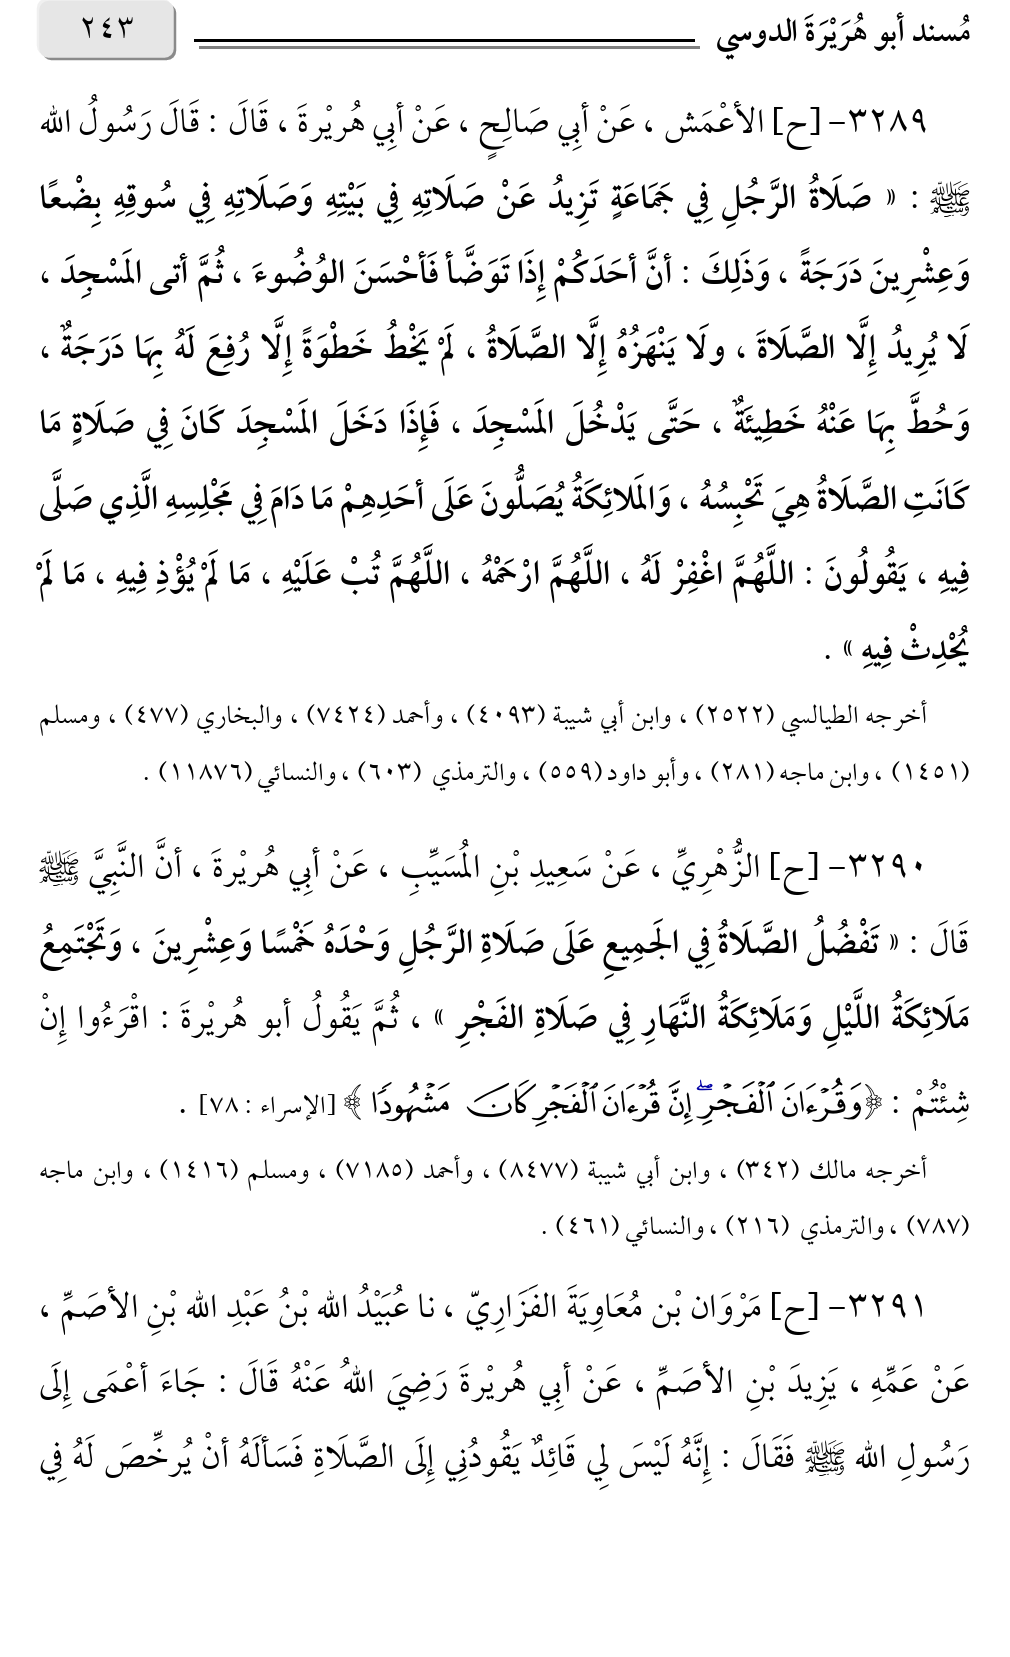 مُسند أبو هُرَيْرَةَ الدوسي ٢٤٣
٣٢٨٩- [ح] الأعْمَش ، عَنْ أبِي صَالِحٍ ، عَنْ أبِي هُريْرةَ ، قَالَ : قَالَ رَسُولُ الله
ﷺ : « صَلَاةُ الرَّجُلِ فِي جَمَاعَةٍ تَزِيدُ عَنْ صَلَاتِهِ فِي بَيْتِهِ وَصَلَاتِهِ فِي سُوقِهِ بِضْعًا
وَعِشْرِينَ دَرَجَةً ، وَذَلِكَ : أنَّ أحَدَكُمْ إِذَا تَوَضَّأ فَأحْسَنَ الوُضُوءَ ، ثُمَّ أتى المَسْجِدَ ،
لَا يُرِيدُ إِلَّا الصَّلَاةَ ، ولَا يَنْهَزُهُ إِلَّا الصَّلَاةُ ، لَمْ يَخْطُ خَطْوَةً إِلَّا رُفِعَ لَهُ بِهَا دَرَجَةٌ ،
وَحُطَّ بِهَا عَنْهُ خَطِيئَةٌ ، حَتَّى يَدْخُلَ المَسْجِدَ ، فَإِذَا دَخَلَ المَسْجِدَ كَانَ فِي صَلَاةٍ مَا
كَانَتِ الصَّلَاةُ هِيَ تَحْبِسُهُ ، وَالمَلائِكَةُ يُصَلُّونَ عَلَى أحَدِهِمْ مَا دَامَ فِي مَجْلِسِهِ الَّذِي صَلَّى
فِيهِ ، يَقُولُونَ : اللَّهُمَّ اغْفِرْ لَهُ ، اللَّهُمَّ ارْحَمْهُ ، اللَّهُمَّ تُبْ عَلَيْهِ ، مَا لَمْ يُؤْذِ فِيهِ ، مَا لَمْ
يُحْدِثْ فِيهِ » .
أخرجه الطيالسي (٢٥٢٢) ، وابن أبي شيبة (٤٠٩٣) ، وأحمد (٧٤٢٤) ، والبخاري (٤٧٧) ، ومسلم
(١٤٥١) ، وابن ماجه (٢٨١) ، وأبو داود (٥٥٩) ، والترمذي (٦٠٣) ، والنسائي (١١٨٧٦) .
٣٢٩٠- [ح] الزُّهْرِيِّ ، عَنْ سَعِيدِ بْنِ المُسَيِّبِ ، عَنْ أبِي هُريْرةَ ، أنَّ النَّبِيَّ ﷺ
قَالَ : « تَفْضُلُ الصَّلَاةُ فِي الجَمِيعِ عَلَى صَلَاةِ الرَّجُلِ وَحْدَهُ خَمْسًا وَعِشْرِينَ ، وَتَجْتَمِعُ
مَلَائِكَةُ اللَّيْلِ وَمَلَائِكَةُ النَّهَارِ فِي صَلَاةِ الفَجْرِ » ، ثُمَّ يَقُولُ أبو هُريْرةَ : اقْرَءُوا إِنْ
شِئْتُمْ : ﴿وَقُرْءَانَ ٱلْفَجْرِ ۖ إِنَّ قُرْءَانَ ٱلْفَجْرِ كَانَ مَشْهُودًا ﴾ [الإسراء : ٧٨] .
أخرجه مالك (٣٤٢) ، وابن أبي شيبة (٨٤٧٧) ، وأحمد (٧١٨٥) ، ومسلم (١٤١٦) ، وابن ماجه
(٧٨٧) ، والترمذي (٢١٦) ، والنسائي (٤٦١) .
٣٢٩١- [ح] مَرْوَان بْن مُعَاوِيَةَ الفَزَارِيّ ، نا عُبَيْدُ الله بْنُ عَبْدِ الله بْنِ الأصَمِّ ،
عَنْ عَمِّهِ ، يَزِيدَ بْنِ الأصَمِّ ، عَنْ أبِي هُريْرةَ رَضِيَ اللهُ عَنْهُ قَالَ : جَاءَ أعْمَى إِلَى
رَسُولِ الله ﷺ فَقَالَ : إِنَّهُ لَيْسَ لِي قَائِدٌ يَقُودُنِي إِلَى الصَّلَاةِ فَسَألَهُ أنْ يُرخِّصَ لَهُ فِي